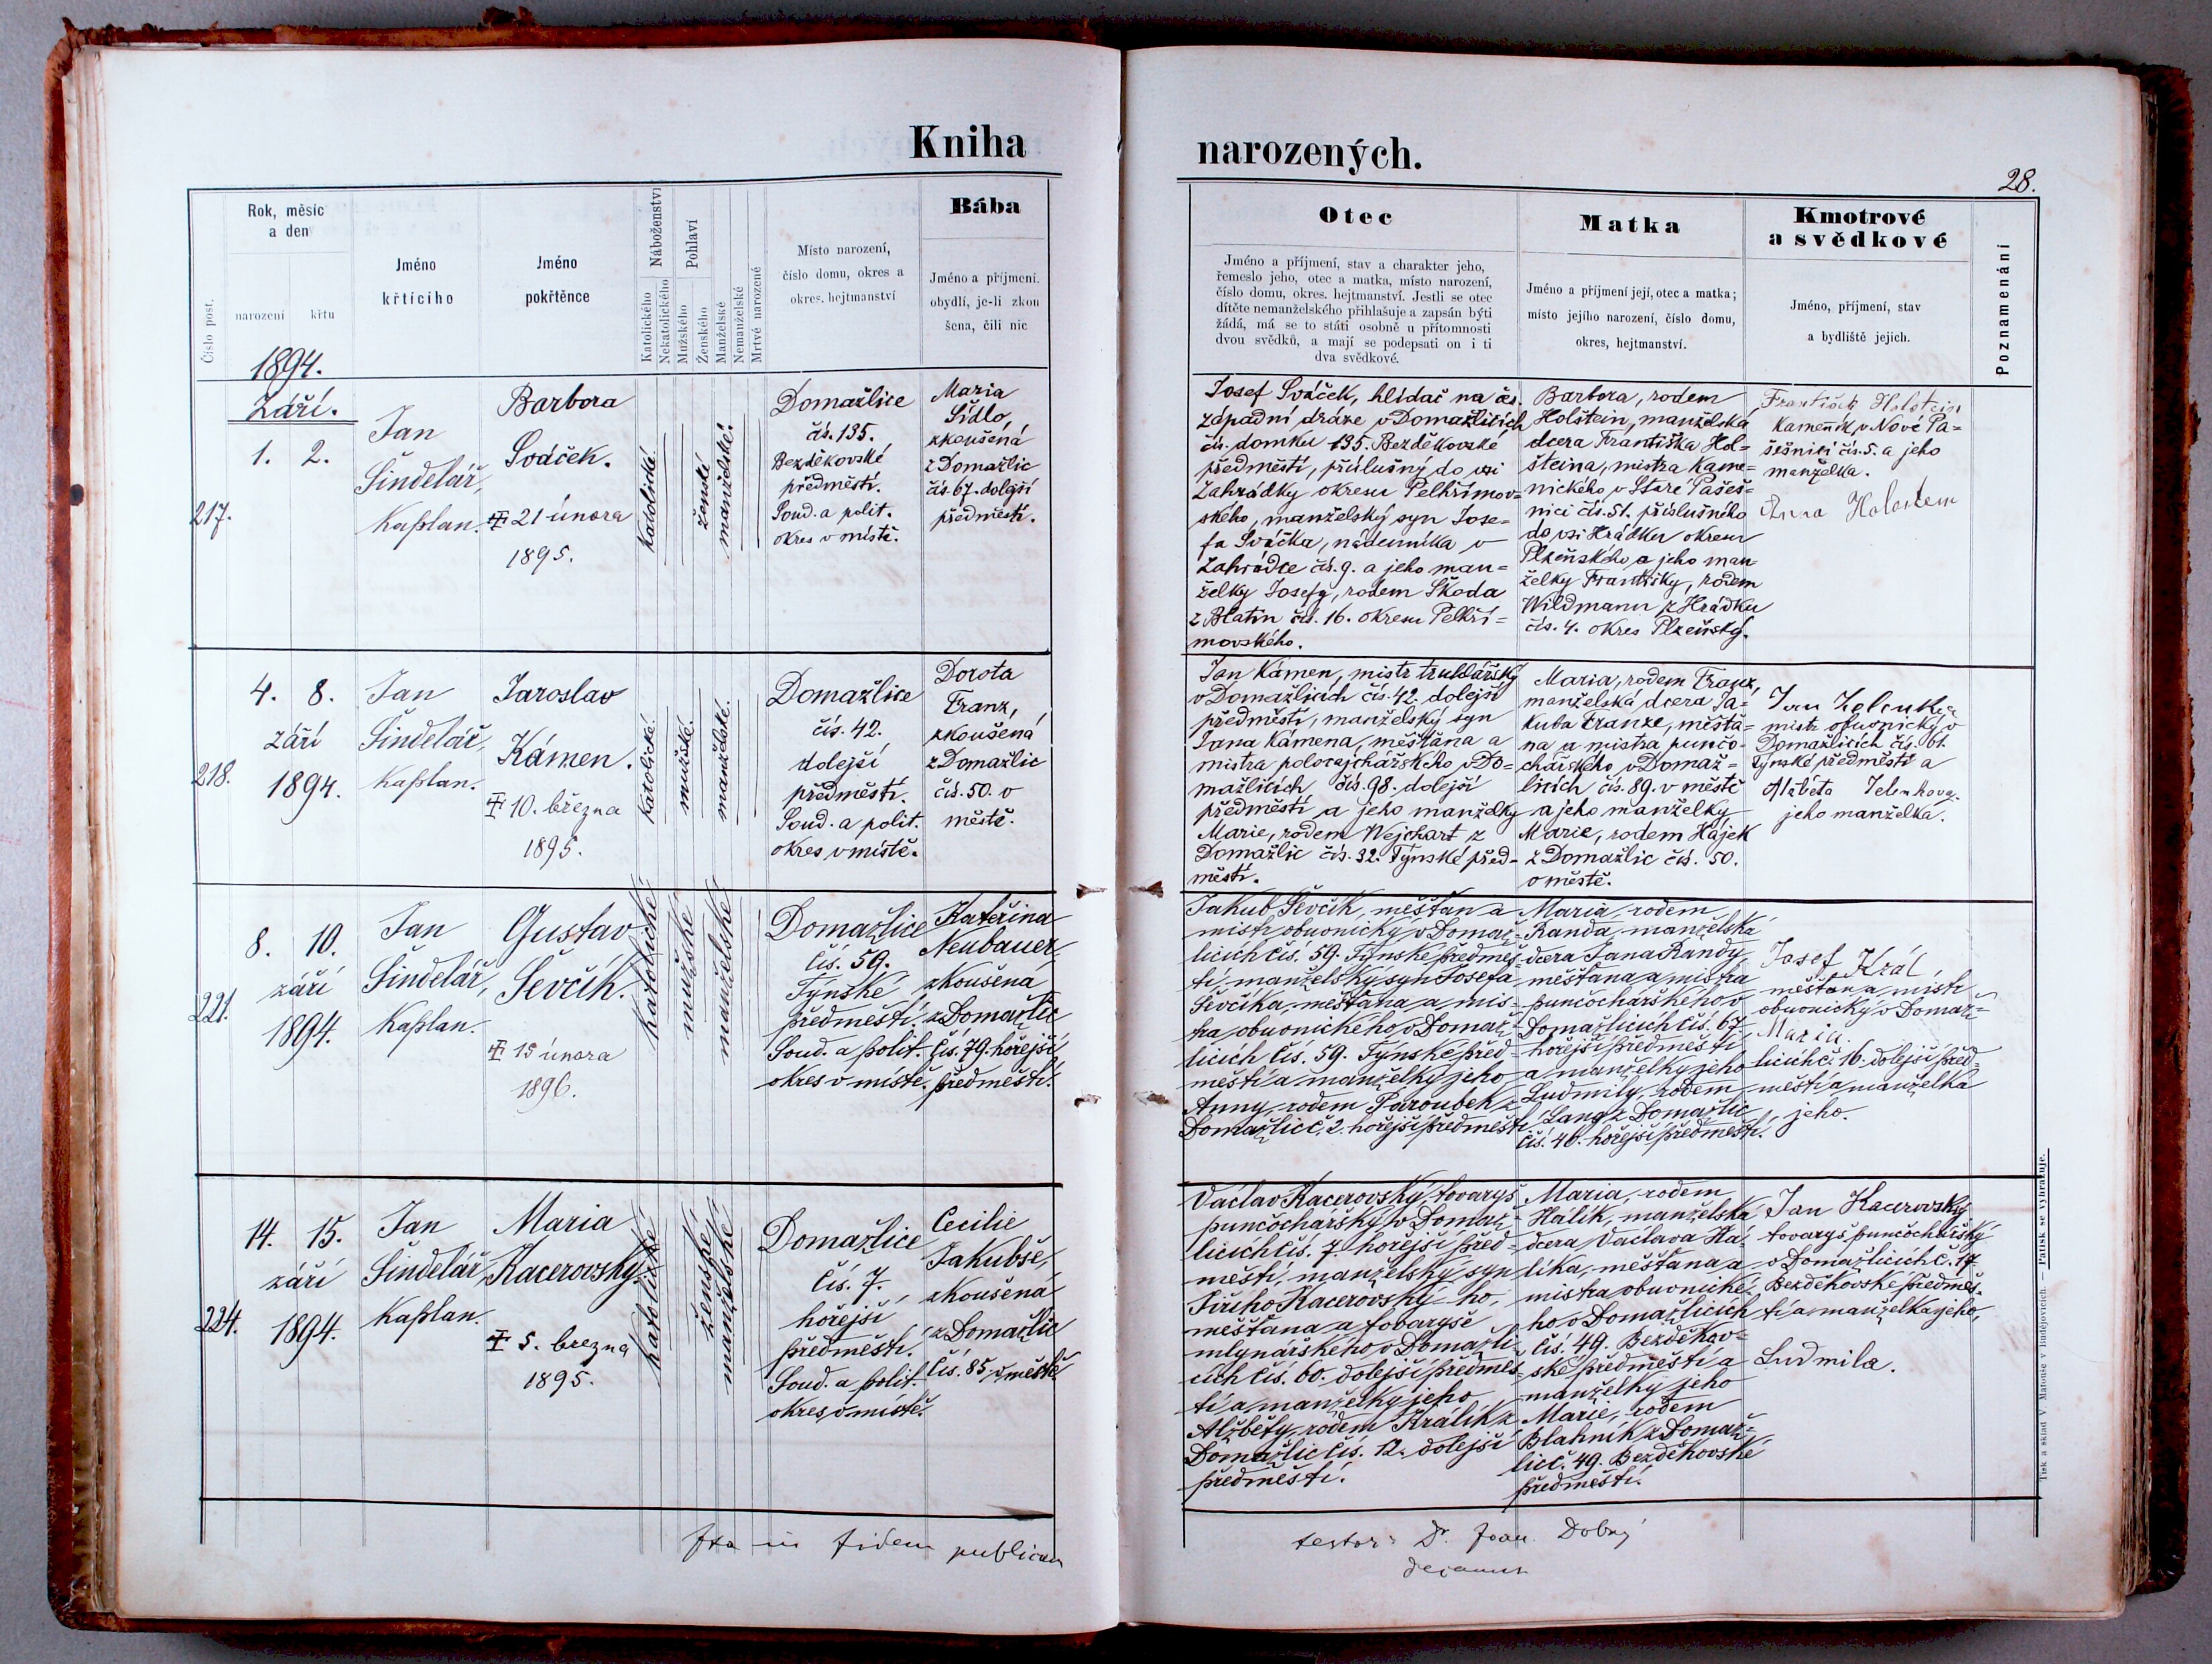 Kniha
Rok, měsíc
a den
narození
křtu
Číslo post.
Jméno
křtícího
Jméno
pokřtěnce
Náboženství
Katolického
Nekatolického
Pohlaví
Mužského
Ženského
Manželské
Nemanželské
Mrtvě narozené
Místo narození,
číslo domu, okres a
okres. hejtmanství
Bába
Jméno a příjmení.
obydlí, je-li zkou
šena, čili nic
1894.
Září.
1. 2.
217.
Jan
Šindelář,
kaplan.
Barbora
Sváček.
21 února
1895.
katolické.
ženské
manželské.
Domažlice
čís. 135.
Bezděkovské
předměstí.
Soud. a polit.
okres v místě.
Maria
Sídlo,
zkoušená
z Domažlic
čís. 67. dolejší
předměstí.
4. 8.
září
1894.
218.
Jan
Šindelář,
kaplan.
Jaroslav
Kámen.
10. března
1895.
katolické.
mužské.
manželské.
Domažlice
čís. 42.
dolejší
předměstí.
Soud. a polit.
okres v místě.
Dorota
Franz,
zkoušená
z Domažlic
čís. 50. v
městě.
8. 10.
září
1894.
221.
Jan
Šindelář,
kaplan.
Gustav
Ševčík.
15 února
1896.
katolické
mužské
manželské
Domažlice
čís. 59.
Týnské
předměstí.
Soud. a polit.
okres v místě.
Kateřina
Neubauer,
zkoušená
z Domažlic
čís. 79. hořejší
předměstí.
14. 15.
září
1894.
224.
Jan
Šindelář,
kaplan.
Maria
Kacerovský.
5. března
1895.
katolické
ženské
manželské
Domažlice
čís. 7.
hořejší
předměstí.
Soud. a polit.
okres v místě.
Cecilie
Jakubše,
zkoušená
z Domažlic
čís. 85 v městě.
Ita in fidem publicam
narozených.
28.
Otec
Jméno a příjmení, stav a charakter jeho,
řemeslo jeho, otec a matka, místo narození,
číslo domu, okres. hejtmanství. Jestli se otec
dítěte nemanželského přihlašuje a zapsán býti
žádá, má se to státi osobně u přítomnosti
dvou svědků, a mají se podepsati on i ti
dva svědkové.
Matka
Jméno a příjmení její, otec a matka;
místo jejího narození, číslo domu,
okres, hejtmanství.
Kmotrové
a svědkové
Jméno, příjmení, stav
a bydliště jejich.
Poznamenání
Josef Sváček, hlídač na čes.
západní dráze v Domažlicích
čís. domku 135. Bezděkovské
předměstí, příslušný do vsi
Zahrádky okresu Pelhřimov=
ského, manželský syn Jose=
fa Sváčka, nádenníka v
Zahrádce čís. 9. a jeho man=
želky Josefy, rodem Škoda
z Blatin čís. 16. okresu Pelhři=
movského.
Barbora, rodem
Holštein, manželská
dcera Františka Hol=
šteina, mistra kame=
nického v Staré Pašeš=
nici čís. 51. příslušného
do vsi Hrádku okresu
Plzeňského a jeho man
želky Františky, rodem
Wildmann z Hrádku
čís. 4. okres Plzeňský.
František Holstein
kameník v Nové Pa=
šešnici čís. 5. a jeho
manželka.
Anna Holstein
Jan Kámen, mistr truhlářský
v Domažlicích čís. 42. dolejší
předměstí, manželský syn
Jana Kámena, měšťana a
mistra polocajchářského v Do=
mažlicích čís. 98. dolejší
předměstí a jeho manželky
Marie, rodem Wejchart z
Domažlic čís. 32. Týnské před=
městí.
Maria, rodem Franz,
manželská dcera Ja=
kuba Franze, měšťa=
na a mistra punčo=
chářského v Domaž=
licích čís. 89. v městě
a jeho manželky
Marie, rodem Hájek
z Domažlic čís. 50.
v městě.
Jan Zelenka
mistr obuvnický v
Domažlicích čís. 61.
Týnské předměstí a
Alžběta Zelenkova
jeho manželka.
Jakub Ševčík, měšťan a
mistr obuvnický v Domaž=
licích čís. 59. Týnské předměs=
tí, manželský syn Josefa
Ševčíka, měšťana a mis=
tra obuvnického v Domaž=
licích čís. 59. Týnské před=
městí a manželky jeho
Anny, rodem Paroubek z
Domažlic č. 2. hořejší předměstí
Maria, rodem
Randa, manželská
dcera Jana Randy,
měšťana a mistra
punčochářského v
Domažlicích čís. 67.
hořejší předměstí
a manželky jeho
Ludmily, rodem
Lang z Domažlic
čís. 40. hořejší předměstí.
Josef Král,
měšťan a mistr
obuvnický v Domaž=
Maria.
licích č. 16. dolejší před=
městí a manželka
jeho.
Václav Kacerovský, tovaryš
punčochářský v Domaž=
licích čís. 7. hořejší před=
městí, manželský syn
Jiřího Kacerovský=ho,
měšťana a tovaryše
mlynářského v Domažli=
cích čís. 60. dolejší předměs=
tí a manželky jeho
Alžběty, rodem Králík z
Domažlic čís. 12. dolejší
předměstí.
Maria, rodem
Hálík, manželská
dcera Václava Há=
líka, měšťana a
mistra obuvnické=
ho v Domažlicích
čís. 49. Bezděkov=
ské předměstí a
manželky jeho
Marie, rodem
Blahník z Domaž=
lic č. 49. Bezděkovské
předměstí.
Jan Kacerovský
tovaryš punčochářský
v Domažlicích č. 17.
Bezděkovské předměs=
tí a manželka jeho,
Ludmila.
testor: Dr. Joan. Dobrý
decanus
Tisk a sklad V. Matouše v Budějovicích. — Patisk se vyhražuje.